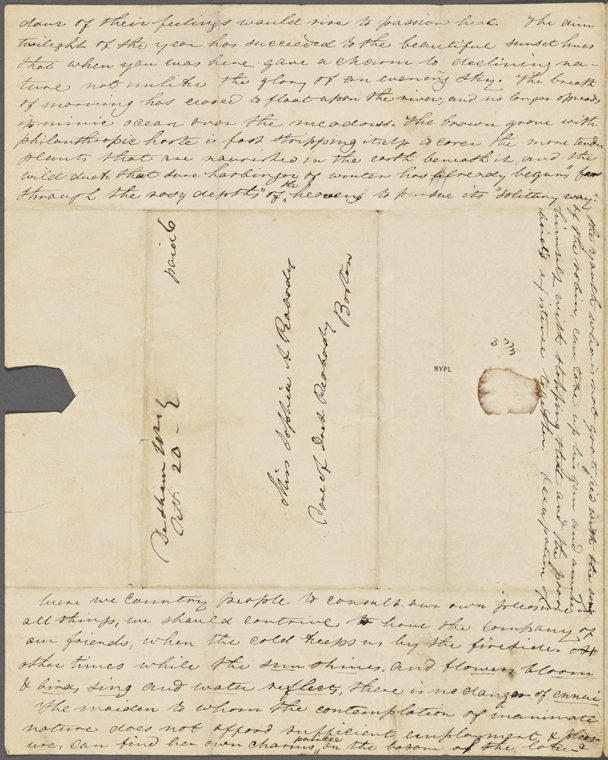 dour of their feelings would rise to passion heat. The dim
twilight of the year has succeeded to the beautiful sunset hues
that when you was here gave a charm to declining na-
ture not unlike the glory of an evening sky. The breath
of morning has ceased to float upon the river, and no longer spreads
its mimic ocean over the meadows. The brown grove with
philanthropic haste is fast stripping itself to cover the more tender
plants that are nourished in the earth beneath it and the
wild duck that sure harbinger of winter has already begun far
through the rosy depths" of the heavens to pursue its "solitary way."
The youth who is not gratified with the song
of the robin, can take up his gun and amuse
himself with stopping that and the poor
bird's existence together. Occupation of
paid 6
Dedham
Oct. 20
Miss Sophia A Peabody
Care of Peabody
Boston
NYPL
Were we country people to consult our own pleasure in
all things, we should contrive to have the company of
our friends, when the cold keeps us by the fireside. At
other times while the sun shines, and flowers bloom
& birds sing and water reflects, there is no danger of ennui
The maiden to whom the contemplation of inanimate
nature does not afford sufficient employment & pleas-
ure, can find her own charms painted on the bosom of the lake &